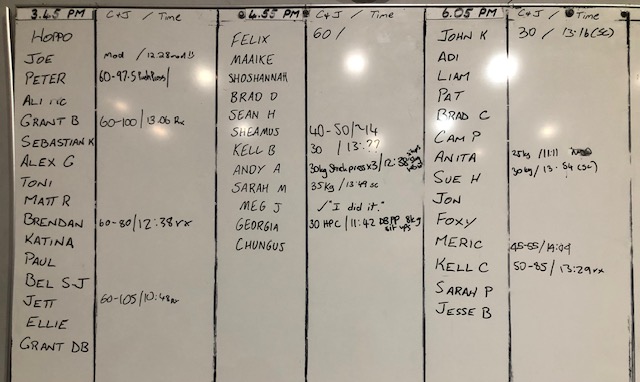 3.45 PM C+J / Time
HOPPO
JOE mod / 12.28 mod!!
PETER 60-97.5 Push Press/
ALI
GRANT B 60-100/13.06 Rx
SEBASTIAN K
ALEX G
TONI
MATT R
BRENDAN 60-80/12:38 rx
KATINA
PAUL
BEL S-J
JETT 60-105/10:48 Rx
ELLIE
GRANT DB
4.55 PM C+J / Time
FELIX 60/
MAAIKE
SHOSHANNAH
BRAD D
SEAN H
SHEAMUS 40-50/~14
KELL B 30 / 13:??
ANDY A 30kg Strict press x3/12:38
SARAH M 35kg/13:49 sc
MEG J /"I did it."
GEORGIA 30 HPC / 11:42 DB PP 8kg sit ups
CHUNGUS
6.05 PM C+J / Time
JOHN K 30 / 13:16 (sc)
ADI
LIAM
PAT
BRAD C
CAM P
ANITA 25kg /11:11
SUE H 30kg/13.54 (sc)
JON
FOXY
MERIC 45-55/14:09
KELL C 50-85/13:29 rx
SARAH P
JESSE B